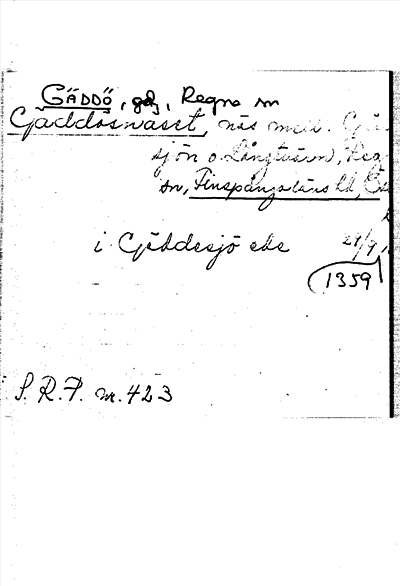 GÄDDÖ, gd, Regna sn
Gäddösnäset, näs mell. Gä
sjön o. Långtvären, Reg
sn, Finspångaläns hd, Ös
i Gäddesjö ede 29/9
1359
S.R.P. nr. 423